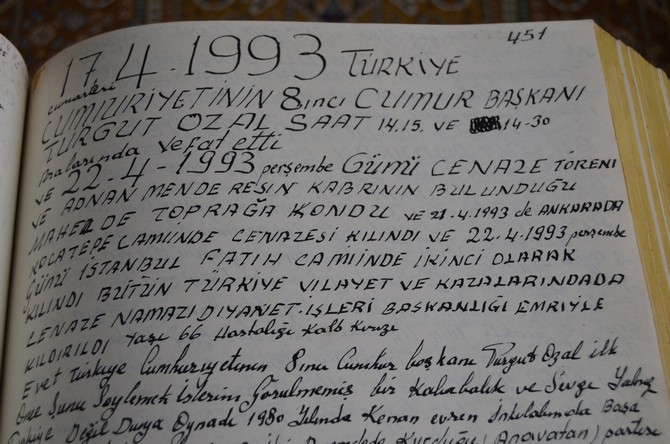 451
17.4.1993 TÜRKİYE
cumartesi
CUMHURİYETİNİN 8inci CUMUR BAŞKANI
TURGUT ÖZAL SAAT 14.15. VE 14-30
Aralarında vefat etti
VE 22.4-1993 perşembe GÜNÜ CENAZE TÖRENİ
VE ADNAN MENDERESİN KABRININ BULUNDUĞU
MAHELDE TOPRAĞA KONDU VE 21.4.1993 de ANKARADA
KOCATEPE CAMİİNDE CENAZESİ KILINDI VE 22.4.1993 perşembe
GÜNÜ İSTANBUL FATİH CAMİİNDE İKİNCİ OLARAK
KILINDI BÜTÜN TÜRKİYE VİLAYET VE KAZALARINDADA
CENAZE NAMAZI DİYANET.İŞLERİ BAŞKANLIĞI EMRİYLE
KILDIRILDI Yaşı 66 Hastalığı Kalb Krizi
Evet Türkiye Cumhuriyetinin 8inci Cumhur başkanı Turgut Özal ilk
Önce Şunu Söylemek İsterim Görülmemiş bir Kalabalık ve Sevgi Yalnız
Türkiye Değil Dünya Oynadı 1980 Yılında Kenan evren İnkılabında Başa
Kurduğu (Anavatan) partisi